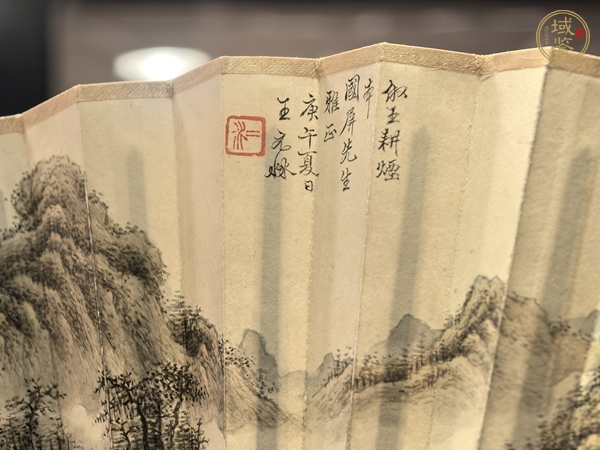 倣王耕煙
本
國屏先生
雅正
庚午夏日
王元
域鉴